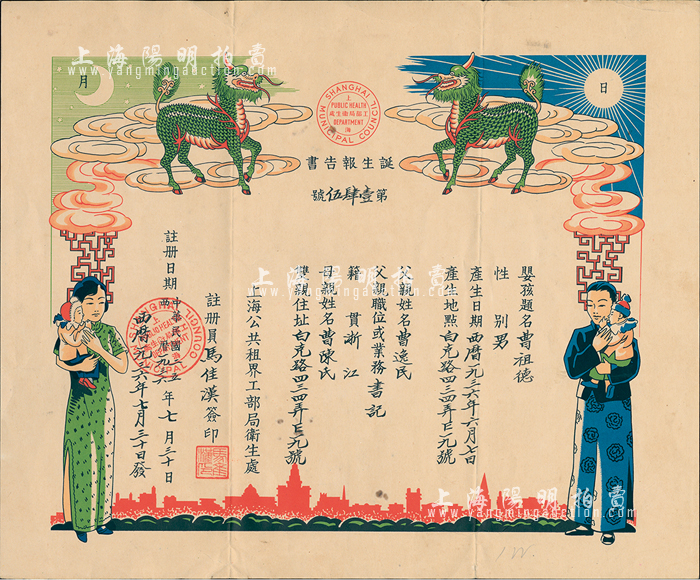 上海陽明拍賣
www.yangmingauction.com
上海陽明拍賣
www.yangmingauction.com
月
日
SHANGHAI MUNICIPAL COUNCIL
PUBLIC HEALTH
工部局衛生處
DEPARTMENT
上海
誕生報告書
第壹肆伍號
嬰孩題名曹祖德
性別男
產生日期西曆一九三六年六月七日
產生地點白克路四三四弄
父親姓名曹逸民
父親職位或業務書記
籍貫浙江
母親姓名曹陳氏
雙親住址白克路四三四弄
上海公共租界工部局衛生處
註册員馬佳漢簽印
註册日期中華民國廿五年七月三十日
西曆一九三六年七月三十日發
上海陽明拍賣
www.yangmingauction.com
上海陽明拍賣
www.yangmingauction.com